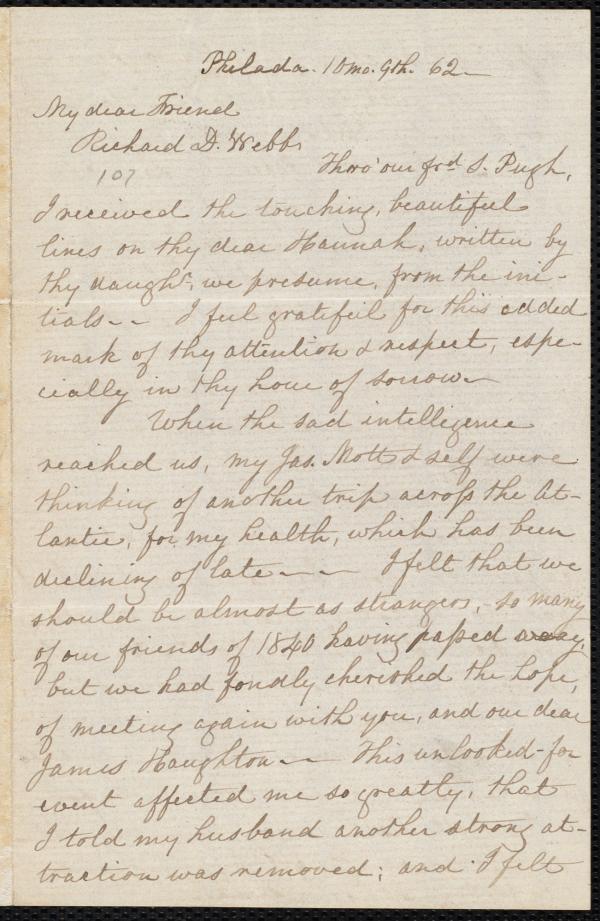 Philada. 10mo. 9th. 62 -
My dear Friend
Richard D. Webb
107
Thro' our frd. S. Pugh,
I received the touching, beautiful
lines on thy dear Hannah, written by
thy daughr., we presume, from the ini-
tials - - I feel grateful for this added
mark of thy attention & respect, espe-
cially in thy hour of sorrow -
When the sad intelligence
reached us, my Jas. Mott & self were
thinking of another trip across the At-
lantic, for my health, which has been
declining of late - - - I felt that we
should be almost as strangers, so many
of our friends of 1840 having passed away,
but we had fondly cherished the hope,
of meeting again with you, and our dear
James Haughton - - This unlooked-for
event affected me so greatly, that
I told my husband another strong at-
traction was removed; and I felt